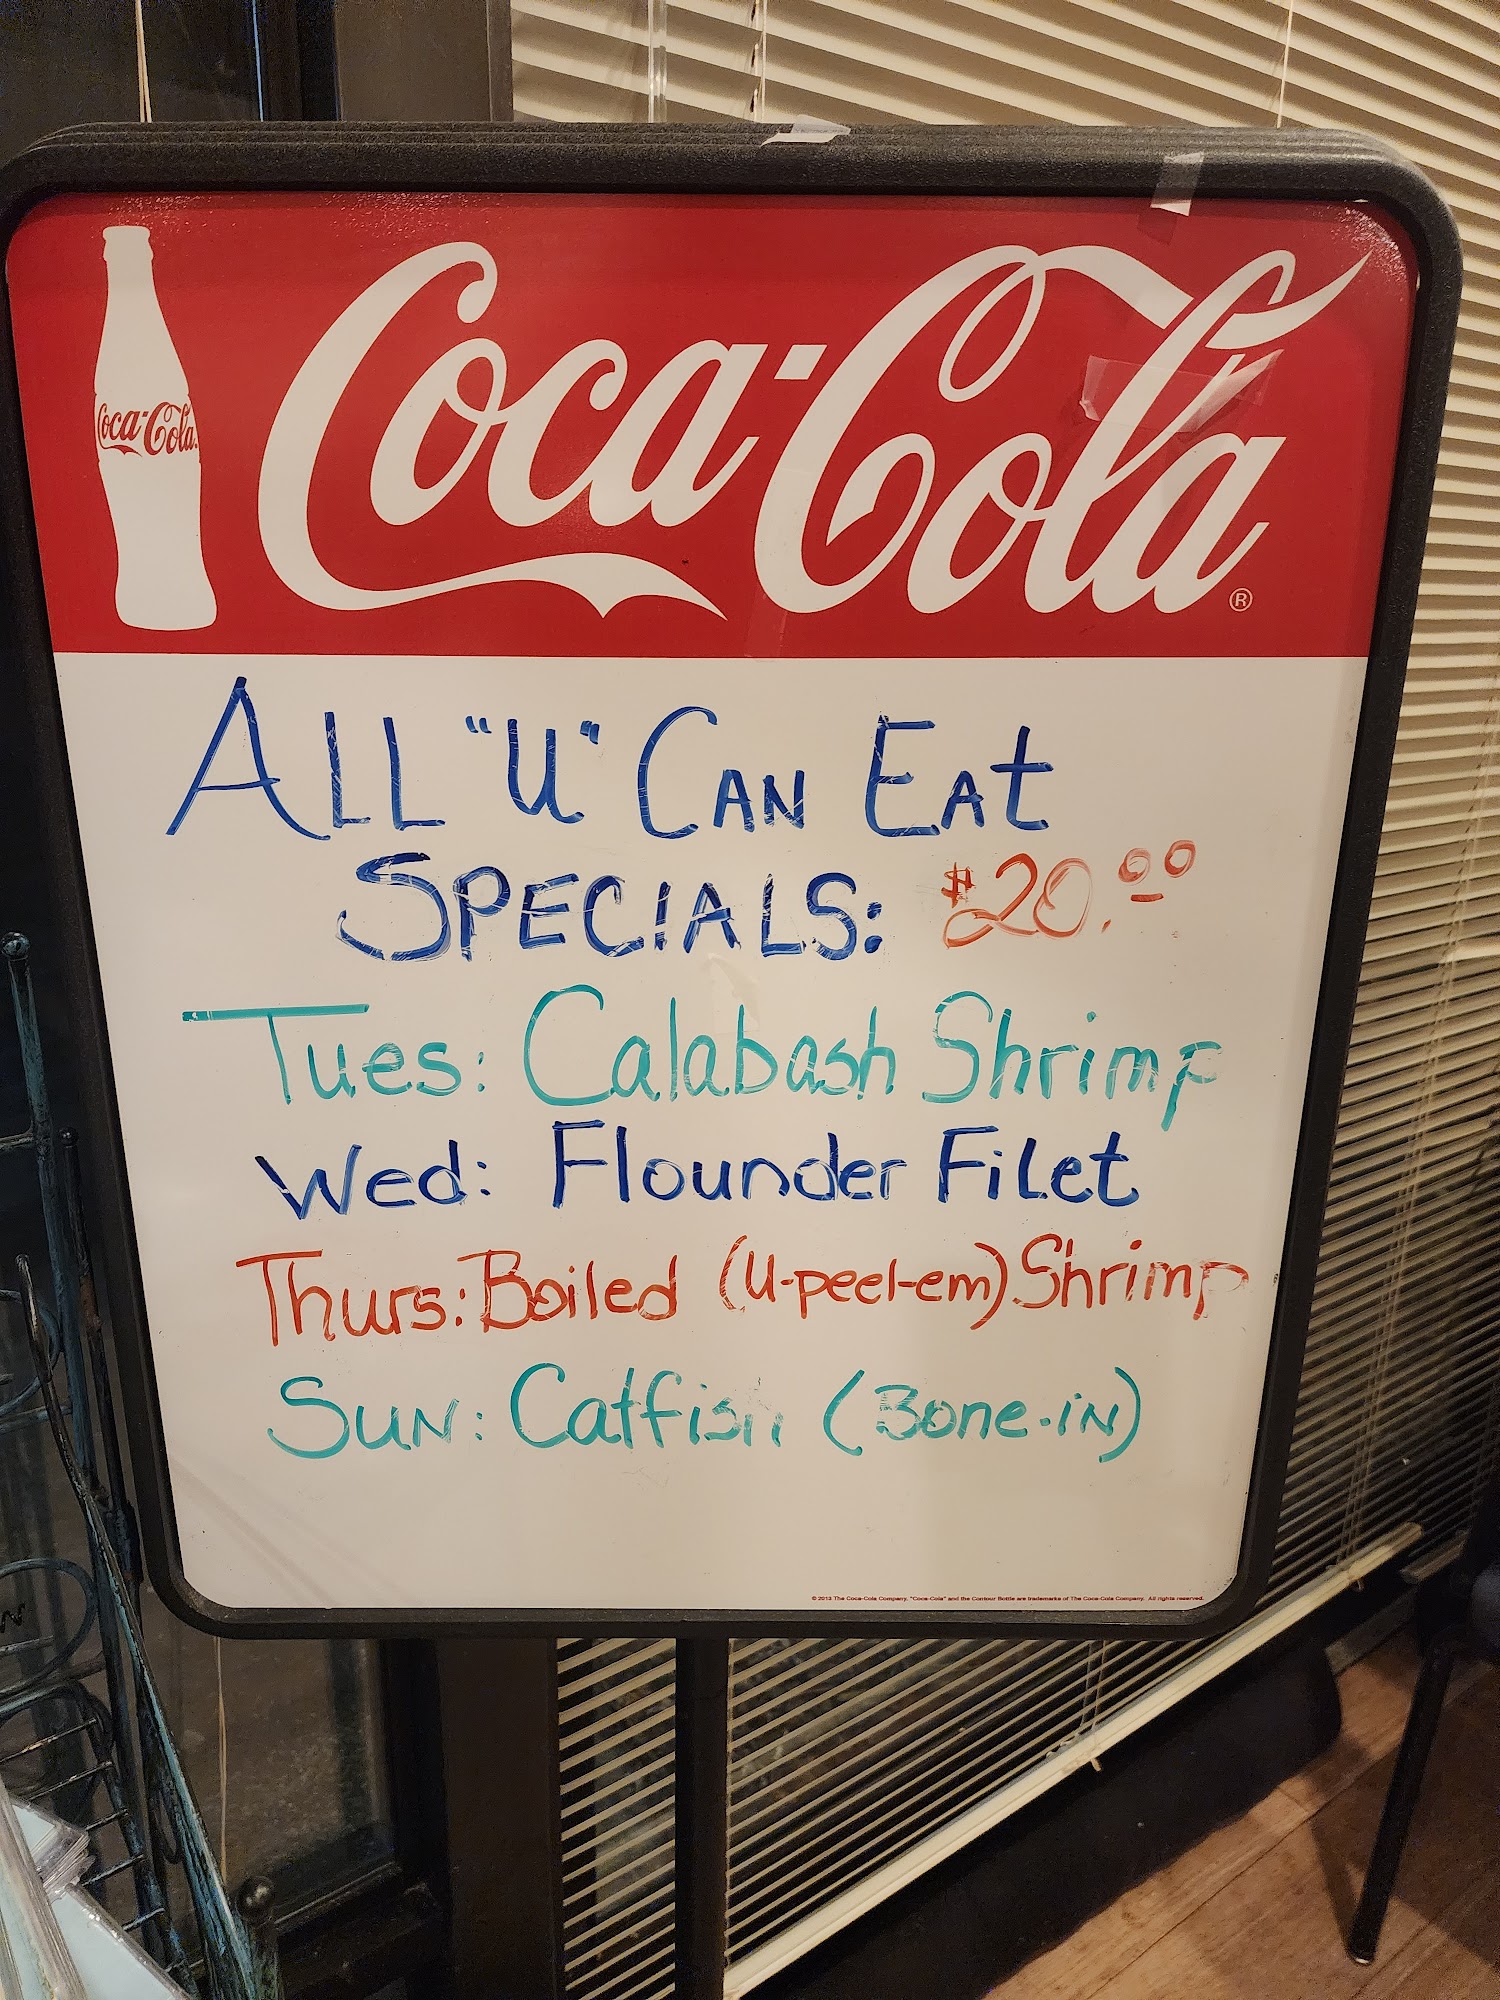 Coca-Cola
Coca-Cola®
ALL "U" CAN EAt
SPECIALS: $20.00
Tues: Calabash Shrimp
Wed: Flounder FiLet
Thurs: Boiled (U-peel-em) Shrimp
SUN: Catfish (Bone-iN)
© 2013 The Coca-Cola Company. "Coca-Cola" and the Contour Bottle are trademarks of The Coca-Cola Company. All rights reserved.